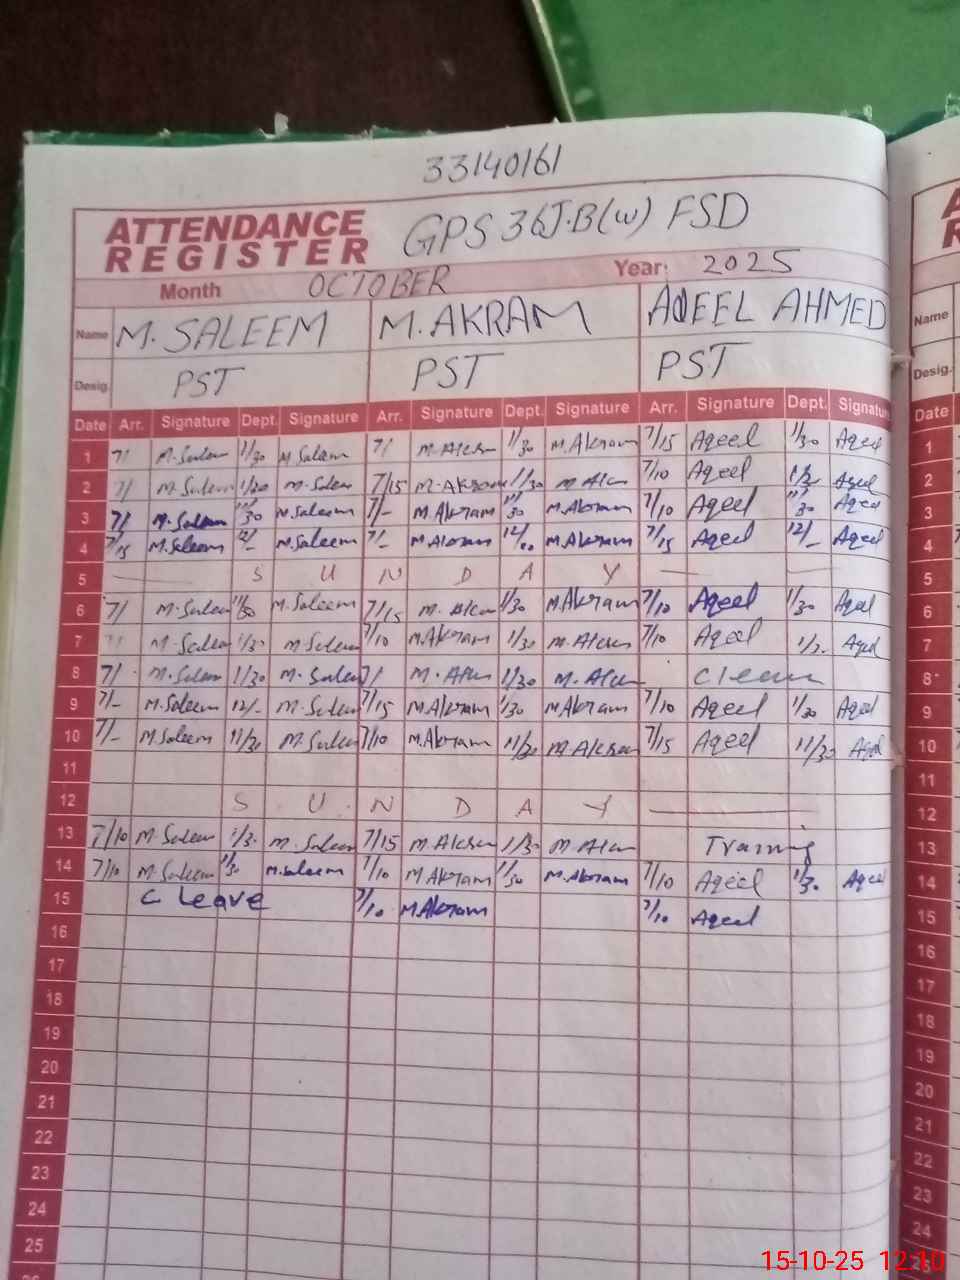 33140161
ATTENDANCE REGISTER GPS 36J.B(W) FSD
Month OCTOBER Year: 2025
Name M. SALEEM M. AKRAM AQEEL AHMED Name
Desig. PST PST PST Desig.
Date Arr. Signature Dept. Signature Arr. Signature Dept. Signature Arr. Signature Dept. Signatu Date
1 7/ M.Saleem 1/30 M Saleem 7/ M.Akram 1/30 M.Akram 7/15 Aqeel 1/30 Aqeel 1
2 7/ M.Saleem 1/30 M.Saleem 7/15 M.Akram 1/30 M.Akram 7/10 Aqeel Aqeel 2
3 7/ M.Saleem 11/30 M.Saleem 7/- M.Akram 11/30 M.Akram 7/10 Aqeel 11/30 Aqeel 3
4 7/15 M.Saleem 12/- M.Saleem 7/- M.Akram 12/00 M.Akram 7/15 Aqeel 12/- Aqeel 4
5 S U N D A Y 5
6 7/ M.Saleem 11/30 M.Saleem 7/15 M.Akram 1/30 M.Akram 7/10 Aqeel 1/30 Aqeel 6
7 7/ M.Saleem 1/30 M.Saleem 7/10 M.Akram 1/30 M.Akram 7/10 Aqeel Aqeel 7
8 7/ M.Saleem 1/30 M.Saleem 7/ M.Akram 1/30 M.Akram 8
9 7/- M.Saleem 12/- M.Saleem 7/15 M.Akram 1/30 M.Akram 7/10 Aqeel 1/30 Aqeel 9
10 7/- M.Saleem 11/30 M.Saleem 7/10 M.Akram 11/30 M.Akram 7/15 Aqeel 11/30 Aqeel 10
11 11
12 S U N D A Y 12
13 7/10 M.Saleem 1/3. M.Saleem 7/15 M.Akram 1/30 M.Akram Training 13
14 7/10 M.Saleem 1/30 M.Saleem 7/10 M.Akram 11/30 M.Akram 7/10 Aqeel 1/30 Aqeel 14
15 C Leave 7/10 M.Akram 7/10 Aqeel 15
16 16
17 17
18 18
19 19
20 20
21 21
22 22
23 23
24 24
25
15-10-25 12:10